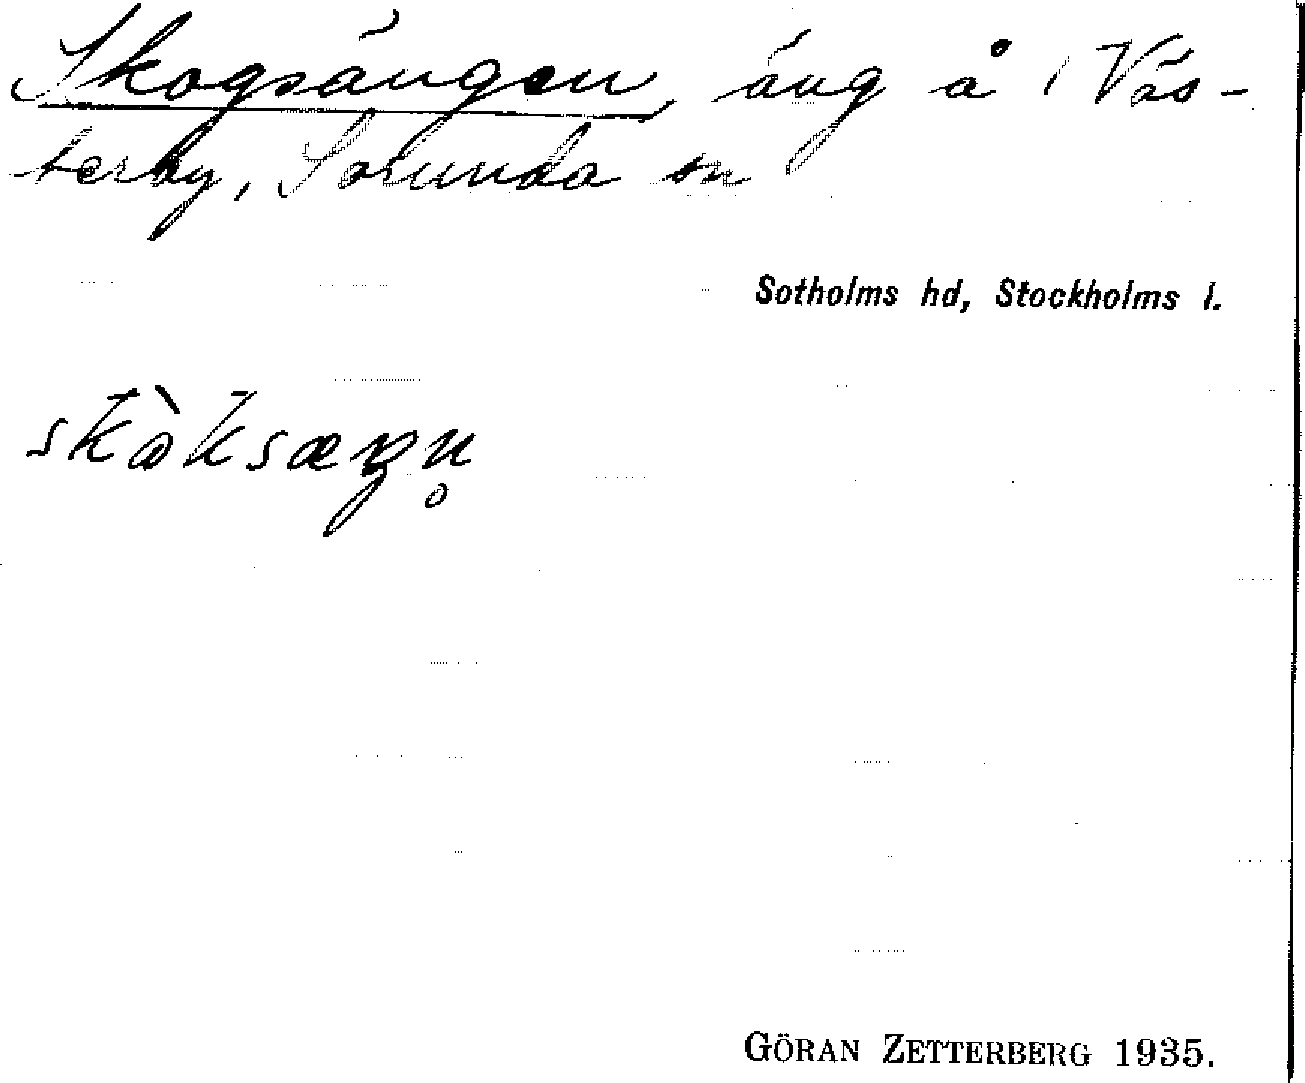 Skogsängen, äng å i Väs-
terby, Sorunda sn
Sotholms hd, Stockholms l.
skò̀ksæŋn̥
GÖRAN ZETTERBERG 1935.